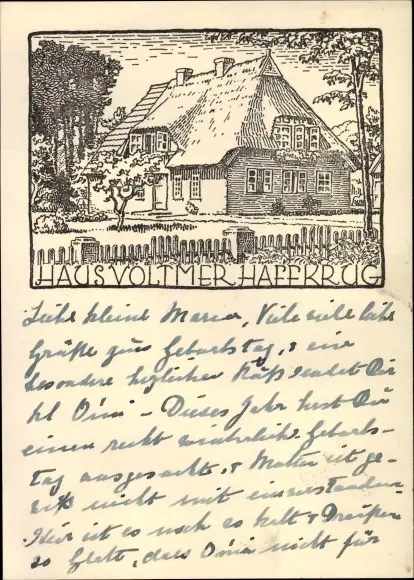 HAUS VOLTMER HAFFKRUG
Liebe kleine Maria, Viele viele liebe
Grüße zum Geburtstag, & eine
besondere herzlichen Kuß sendet Dir
Omi - Dieses Jahr hast Du
einen recht Geburts-
tag ausgesucht, & Mutter ist ge-
wiß nicht mit einverstanden.
Hier ist es noch so kalt & Draußen
so glatt, dass Omi nicht für